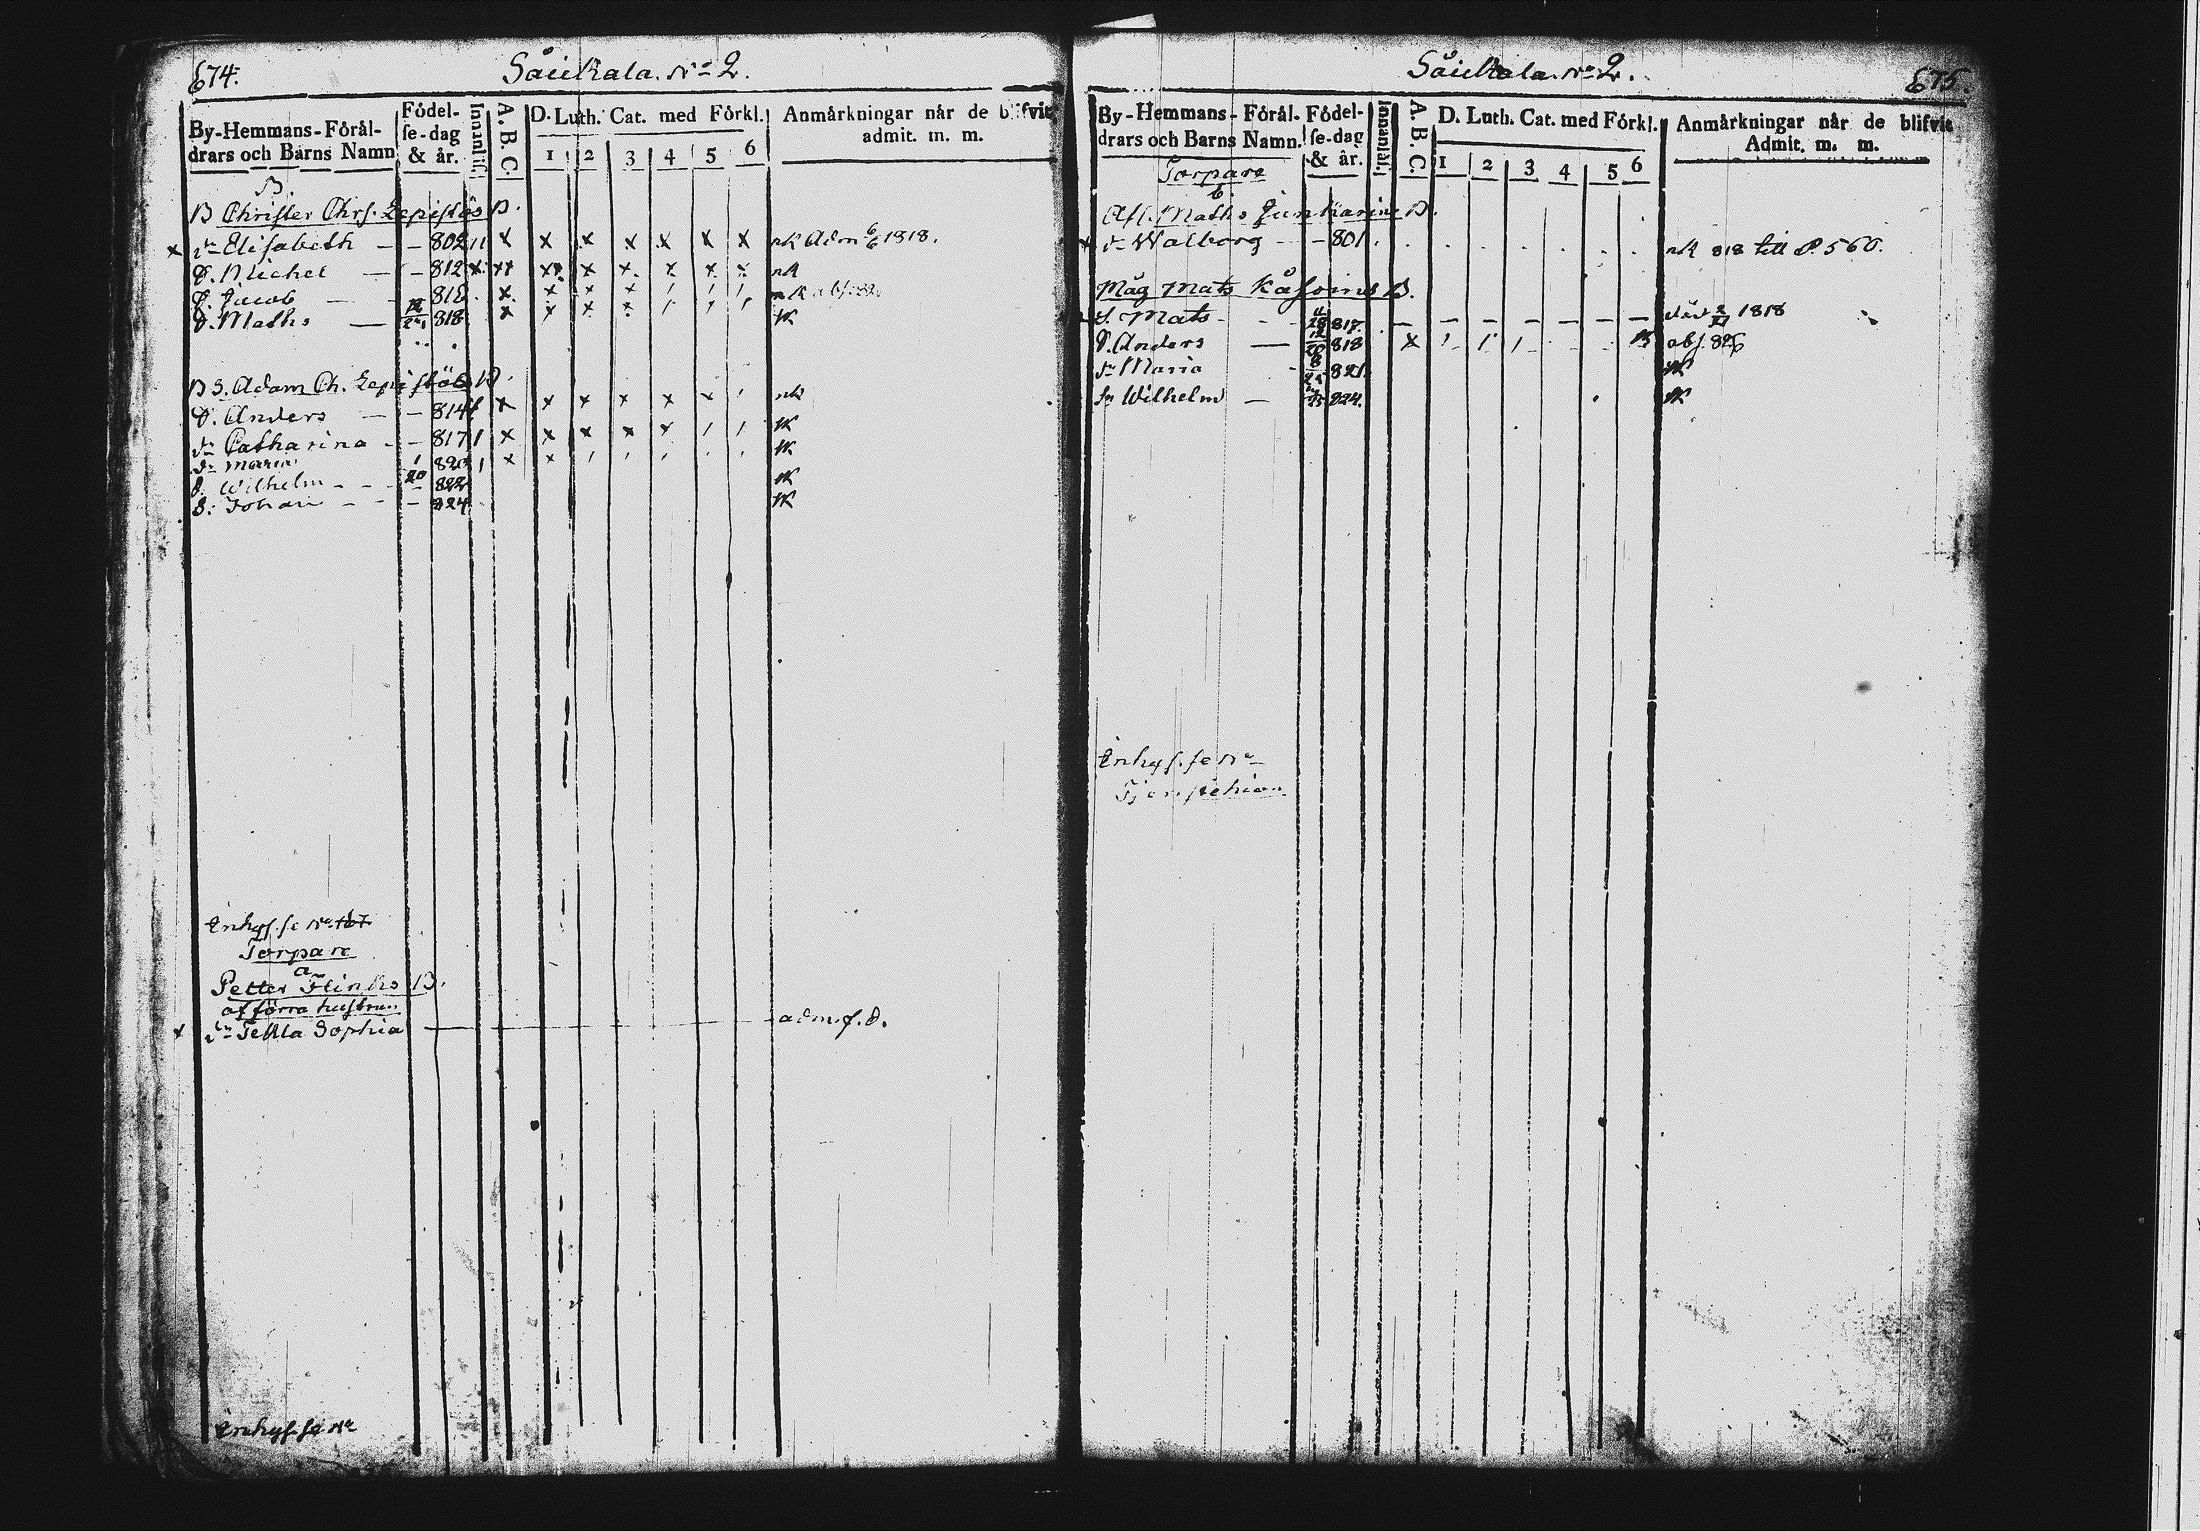 674.
Såiekala. No 2.
By-Hemmans-Förål-
drars och Barns Namn
Födel-
se-dag
& år.
Innanläs.
A. B. C.
D. Luth. Cat. med Förkl.
1 2 3 4 5 6
Anmärkningar når de blifvit
admit. m. m.
B.
B Christer Chrs. Lepistös B.
x dr Elisabeth — — 802 11 x x x x x x x nk Adm 6/6 1818.
S. Michel — — 812 x x x x x x x x nk
S. Jacob — — 816 x x x x 1 1 1
S. Maths — 12/24 818 x x x x 1 1 1 nk
B S. Adam Ch. Lepistös B.
S. Anders — — 814 x x x x x x 1 nk
dr Catharina — — 817 1 x x x x x 1 1 nk
dr Maria 1/20 820 1 x x 1 1 1 nk
S. Wilhelm — — — 822 nk
S. Johan — — — 824 nk
Inhys. se No
Torpare
a
Petter Flinks B.
af förra hustrun
x dr Tekla Sophia — adm. f. d.
Inhys. se No
675.
Såiekala. No 2.
By-Hemmans-Förål-
drars och Barns Namn.
Födel-
se-dag
& år.
Innanläs.
A. B. C.
D. Luth. Cat. med Förkl.
1 2 3 4 5 6
Anmärkningar når de blifvit
Admit. m. m.
Torpare
b.
Afl. Maths Junkarins B.
x dr Walborg — — 801. nk 818 till P. 560.
Måg Mats Kåhoins B.
S. Mats — — 817. — — — — — — — död 1818
S. Anders — 12/20 818 x 1 1 1 abs. 826
dr Maria — 821 nk
Sn Wilhelm — 824. nk
Inhys. se No